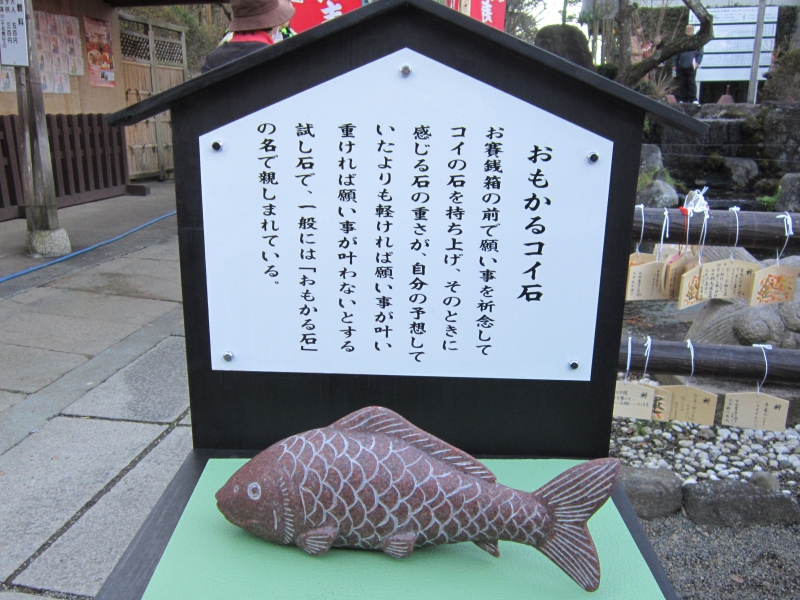 おもかるコイ石
お賽銭箱の前で願い事を祈念して
コイの石を持ち上げ、そのときに
感じる石の重さが、自分の予想して
いたよりも軽ければ願い事が叶い
重ければ願い事が叶わないとする
試し石で、一般には「おもかる石」
の名で親しまれている。